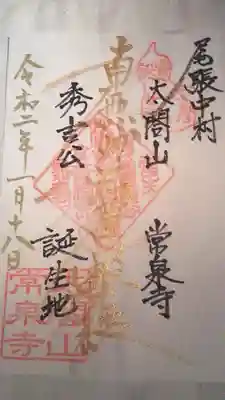 尾張中村
太閤山 常泉寺
南無妙法蓮華経
秀吉公 誕生地
令和二年一月十八日
常泉寺